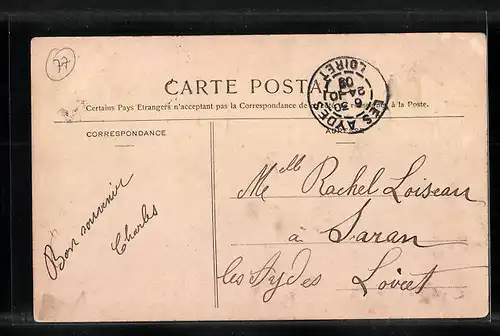 77
CARTE POSTA
Certains Pays Etrangers n'acceptant pas la Correspondance de à la Poste.
LES AYDES
6 30
24-10
08
LOIRET
CORRESPONDANCE
Bon souvenir
Charles
Melle Rachel Loiseau
à Saran
les Aydes Loiret